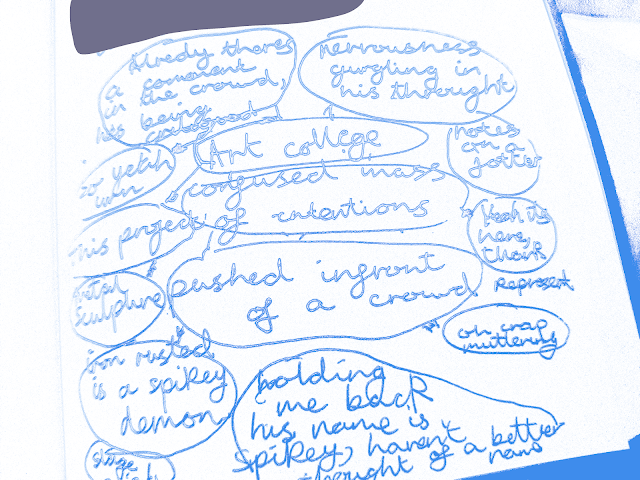 Alredy theres
a comment
in the crowd,
his being
Nervousness
gurgling in
his throught
Art college
notes
on a
jotter
so yeah
um
confused mass
of intentions
this project
Yeah its
here,
thank
metal
sculpture
pushed infront
of a crowd
Represent
oh crap
muttering
iron rusted
is a spikey
demon
holding
me back
his name is
spikey, havent
thought of a better
name
stage